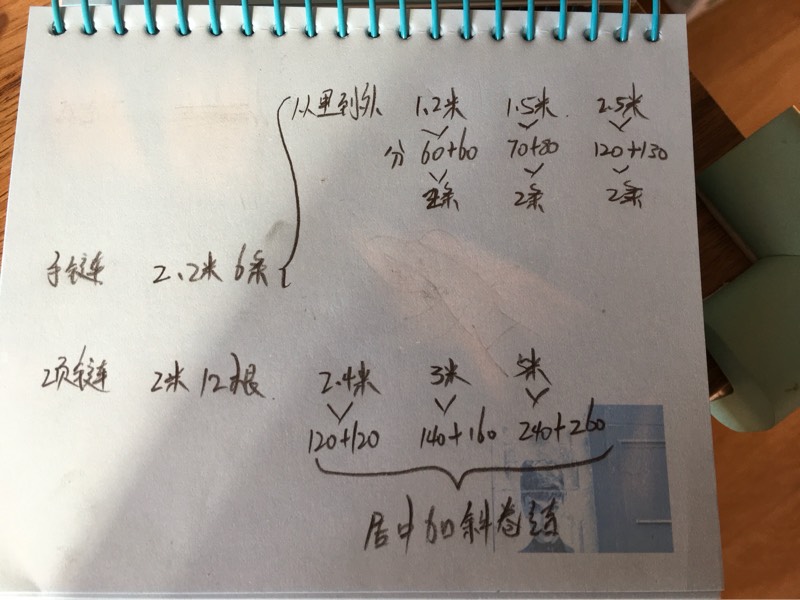 从里到外 1.2米 1.5米 2.5米
分 60+60 70+80 120+130
2条 2条 2条
手链 2.2米 6条
项链 2米 12根 2.4米 3米 5米
120+120 140+160 240+260
居中加斜卷结